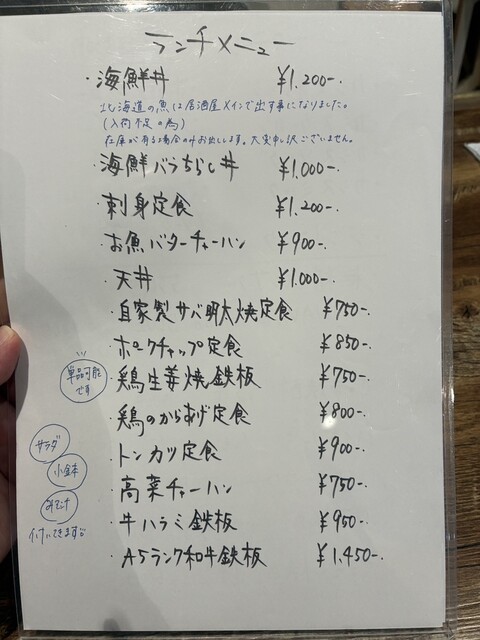 ランチメニュー
・海鮮丼 ¥1.200-.
北海道の魚は居酒屋メインで出す事になりました。
(入荷不足の為)
在庫がある場合のみお出しします。大変申し訳ございません。
・海鮮バラちらし丼 ¥1.000-.
・刺身定食 ¥1.200-.
・お魚バターチャーハン ¥900-.
・天丼 ¥1.000-.
・自家製サバ明太焼定食 ¥750-.
・ポークチャップ定食 ¥850-.
単品可能です
・鶏生姜焼鉄板 ¥750-.
・鶏のからあげ定食 ¥800-.
サラダ
・トンカツ定食 ¥900-.
小鉢
・高菜チャーハン ¥750-.
みそ汁
・牛ハラミ鉄板 ¥950-.
付いてきます
・A5ランク和牛鉄板 ¥1.450-.